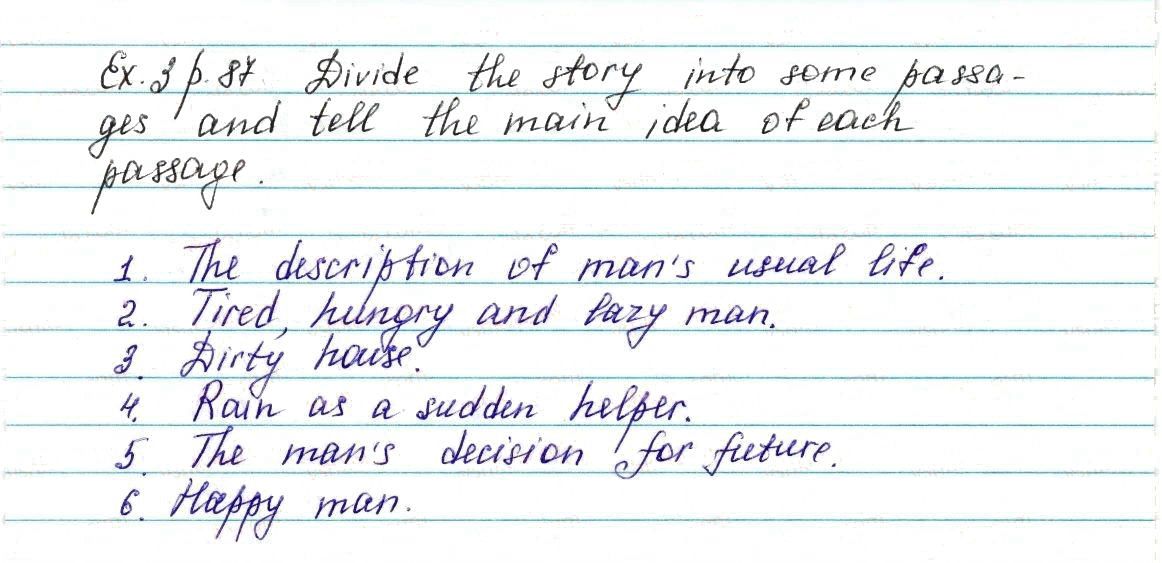 Ex. 3 p. 87. Divide the story into some passa-
ges and tell the main idea of each
passage.
1. The description of man's usual life.
2. Tired, hungry and lazy man.
3. Dirty house.
4. Rain as a sudden helper.
5. The man's decision for future.
6. Happy man.